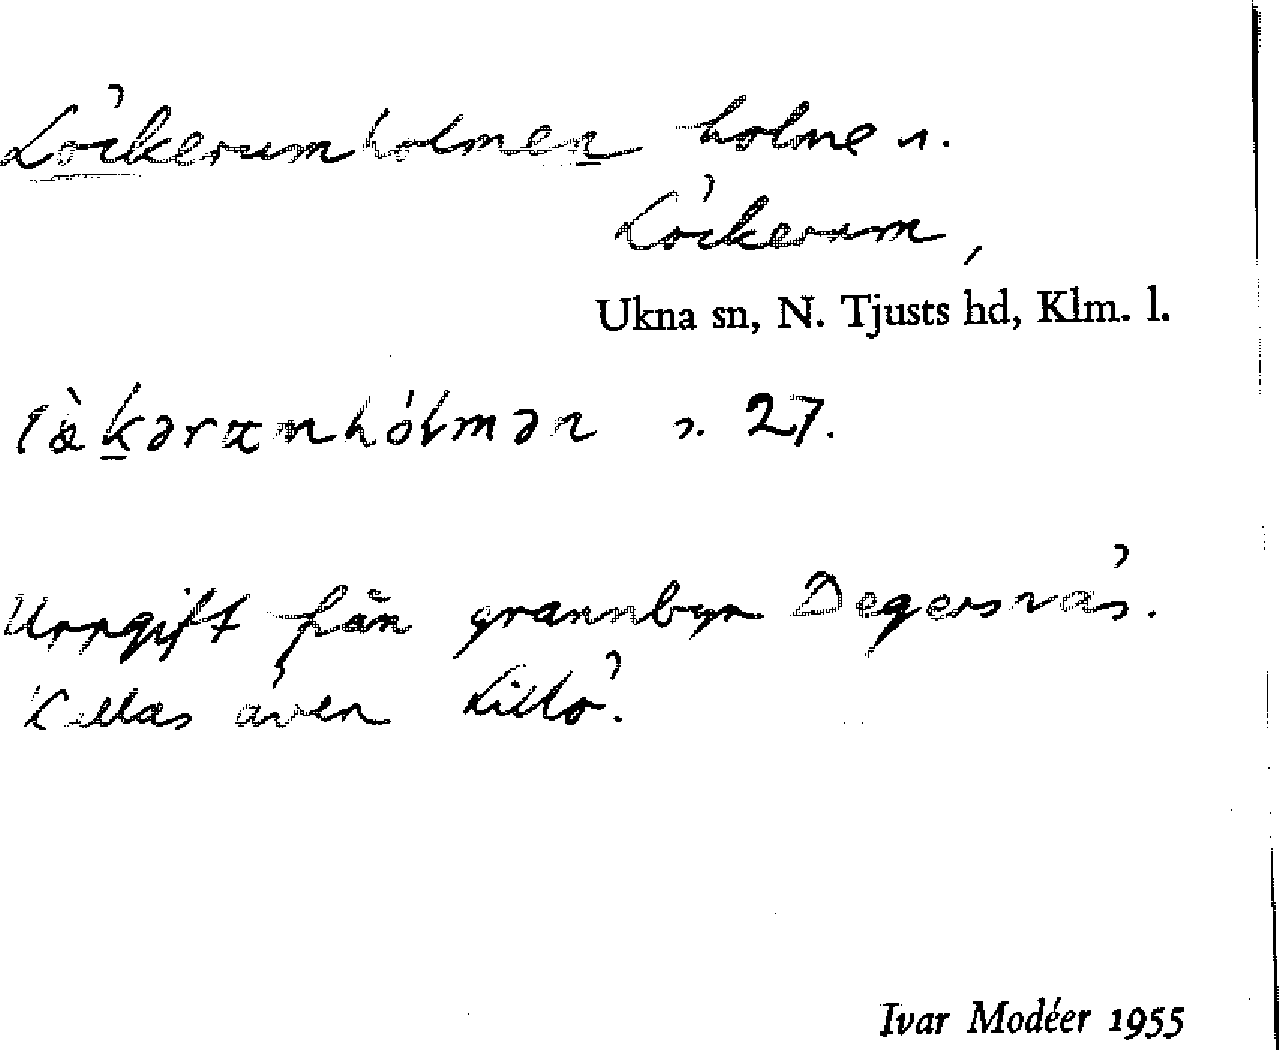 Löckerumholmen holme n.
Löckerum,
Ukna sn, N. Tjusts hd, Klm. l.
n. 27.
Uppgift från grannbyn Degersnäs.
Kallas även Lillö.
Ivar Modéer 1955